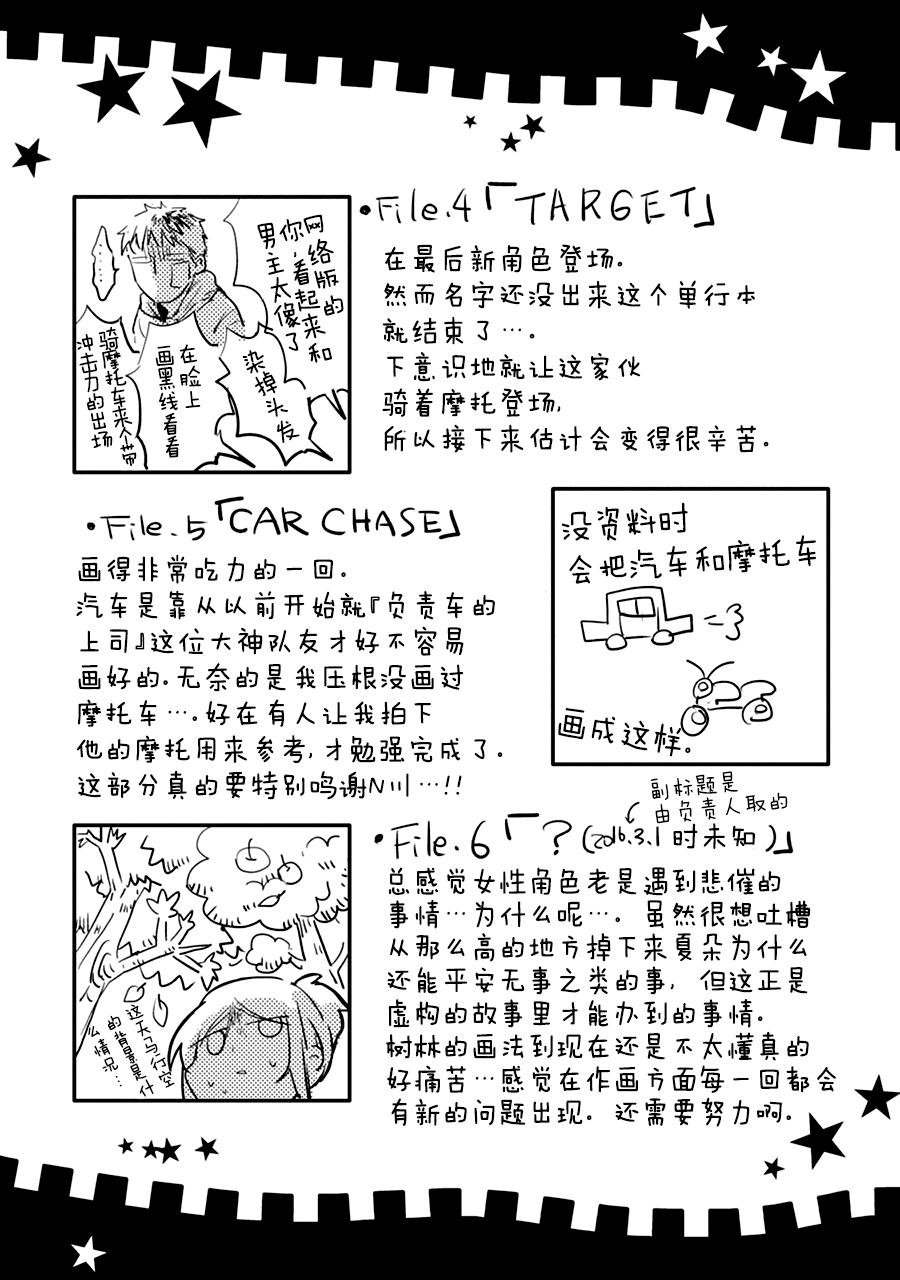 •File.4「TARGET」
在最后新角色登场。
然而名字还没出来这个单行本
就结束了…。
下意识地就让这家伙
骑着摩托登场,
所以接下来估计会变得很辛苦。
网络版的
你,看起来和
男主太像了
……
染掉头发
在脸上
画黑线看看
骑摩托车来个带
冲击力的出场
•File.5「CAR CHASE」
画得非常吃力的一回。
汽车是靠从以前开始就『负责车的
上司』这位大神队友才好不容易
画好的。无奈的是我压根没画过
摩托车…。好在有人让我拍下
他的摩托用来参考,才勉强完成了。
这部分真的要特别鸣谢N川…!!
没资料时
会把汽车和摩托车
画成这样。
副标题是
由负责人取的
•File.6「?(2016.3.1时未知)」
总感觉女性角色老是遇到悲催的
事情…为什么呢…。虽然很想吐槽
从那么高的地方掉下来夏朵为什么
还能平安无事之类的事,但这正是
虚构的故事里才能办到的事情。
树林的画法到现在还是不太懂真的
好痛苦…感觉在作画方面每一回都会
有新的问题出现。还需要努力啊。
这天马行空
的背景是什
么情况…